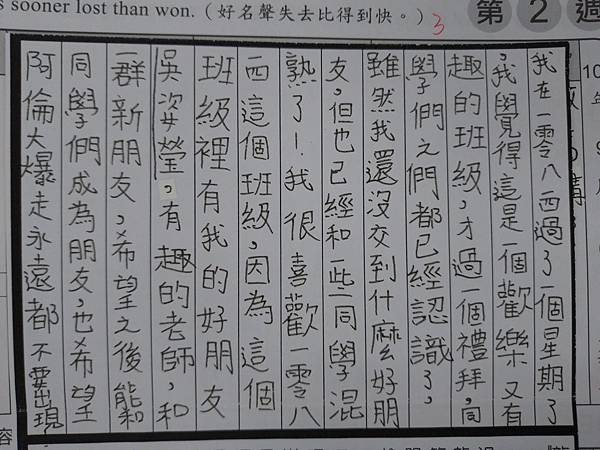 s sooner lost than won.（好名聲失去比得到快。）
3
第2週
我在一零八西過了一個星期了
，我覺得這是一個歡樂又有
趣的班級，才過一個禮拜，同
學們之們都已經認識了，
雖然我還沒交到什麼好朋
友，但也已經和一些同學混
熟了！我很喜歡一零八
西這個班級，因為這個
班級裡有我的好朋友
吳姿瑩，有趣的老師，和
一群新朋友，希望之後能和
同學們成為朋友，也希望
阿倫大爆走永遠都不要出現
10
年
9
容